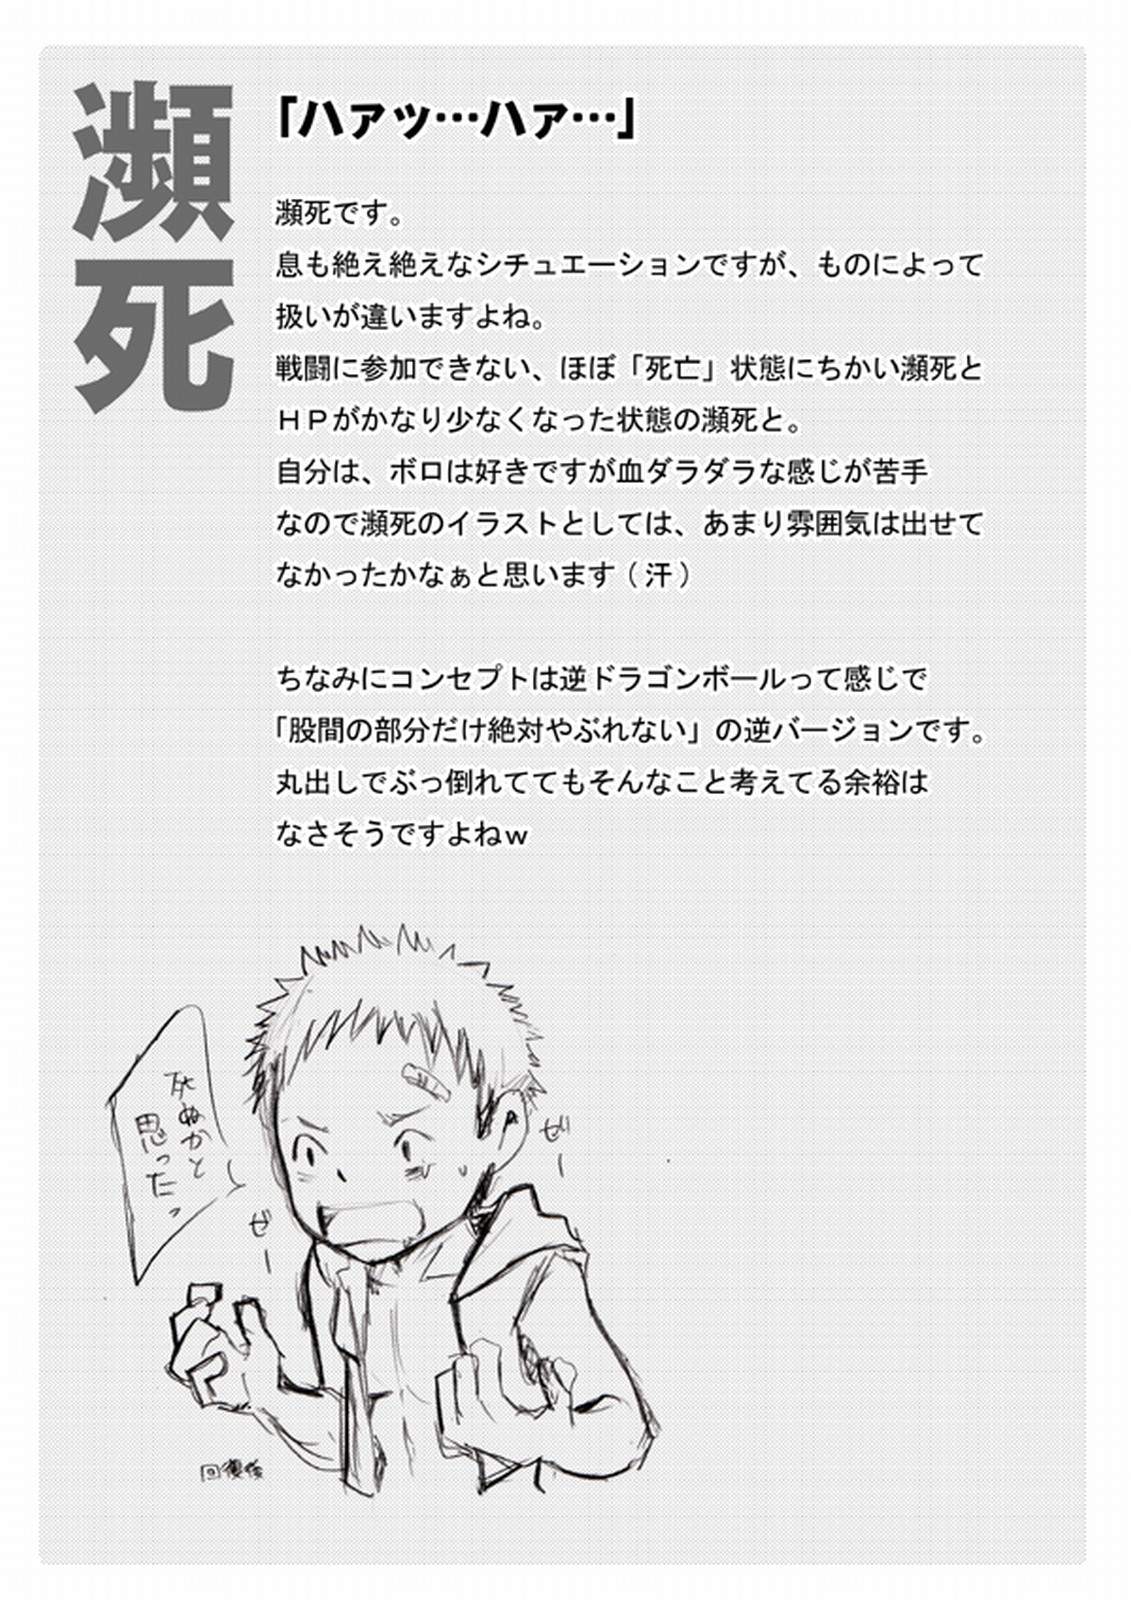 瀕死
「ハァッ…ハァ…」
瀕死です。
息も絶え絶えなシチュエーションですが、ものによって
扱いが違いますよね。
戦闘に参加できない、ほぼ「死亡」状態にちかい瀕死と
ＨＰがかなり少なくなった状態の瀕死と。
自分は、ボロは好きですが血ダラダラな感じが苦手
なので瀕死のイラストとしては、あまり雰囲気は出せて
なかったかなぁと思います(汗)
ちなみにコンセプトは逆ドラゴンボールって感じで
「股間の部分だけ絶対やぶれない」の逆バージョンです。
丸出しでぶっ倒れててもそんなこと考えてる余裕は
なさそうですよねｗ
死ぬかと
思ったっ
ぜー
ぜー
回復後